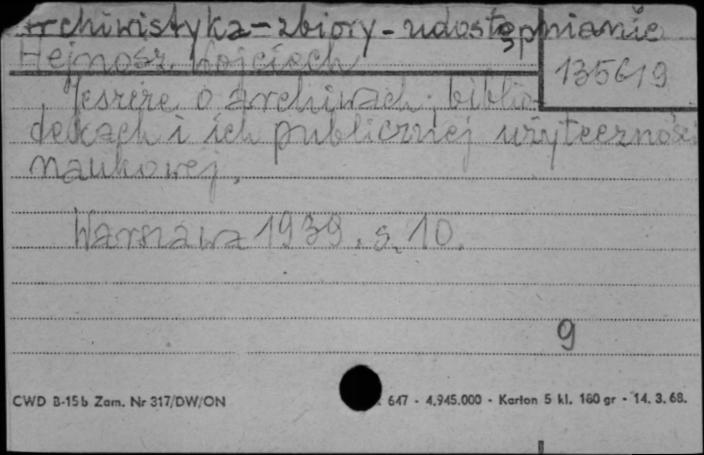 Archiwistyka-zbiory-udostępnianie
Hejnosz Wojciech
135619
Jeszcze o archiwach, biblio-
tekach i ich publicznej użyteczności
naukowej.
Warszawa 1939. s. 10.
9
CWD B-15b Zam. Nr 317/DW/ON 647 - 4.945.000 - Karton 5 kl. 160 gr - 14. 3. 68.